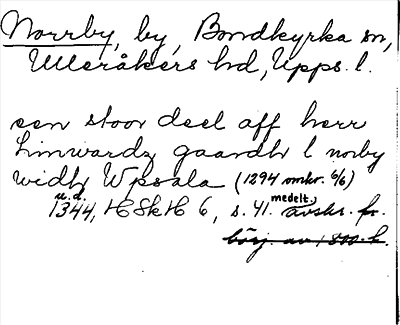 Norrby, by, Bondkyrka sn,
Ulleråkers hd, Upps. l.
een stoor deel aff herr
Linwardz gaardh l norby
widh Wpsala (1294 omkr. 6/6)
u.d. medelt.
1344, HSkH 6, s. 41. avskr. fr.
börj. av 1800-t.